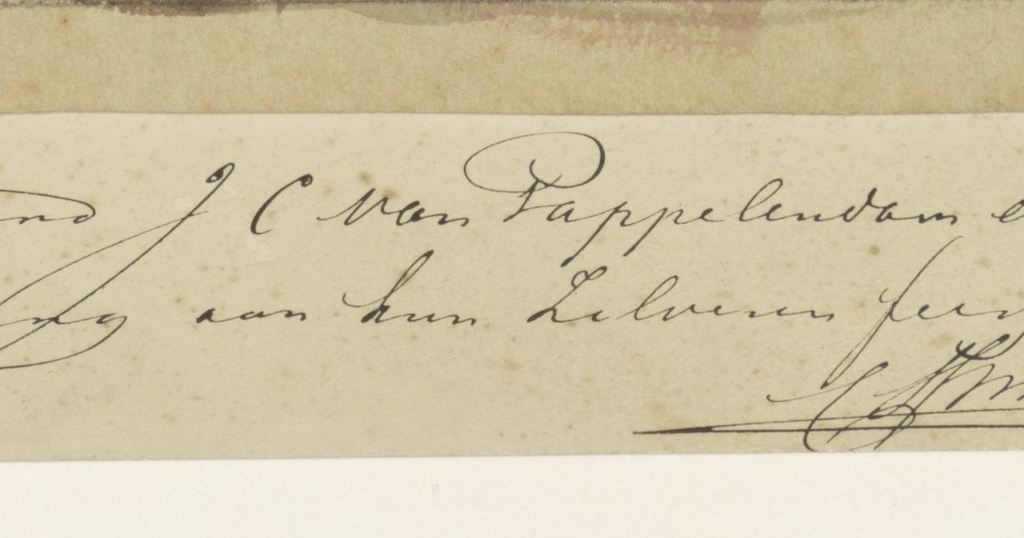 J C Van Pappelendam
aan hun Zilveren feest